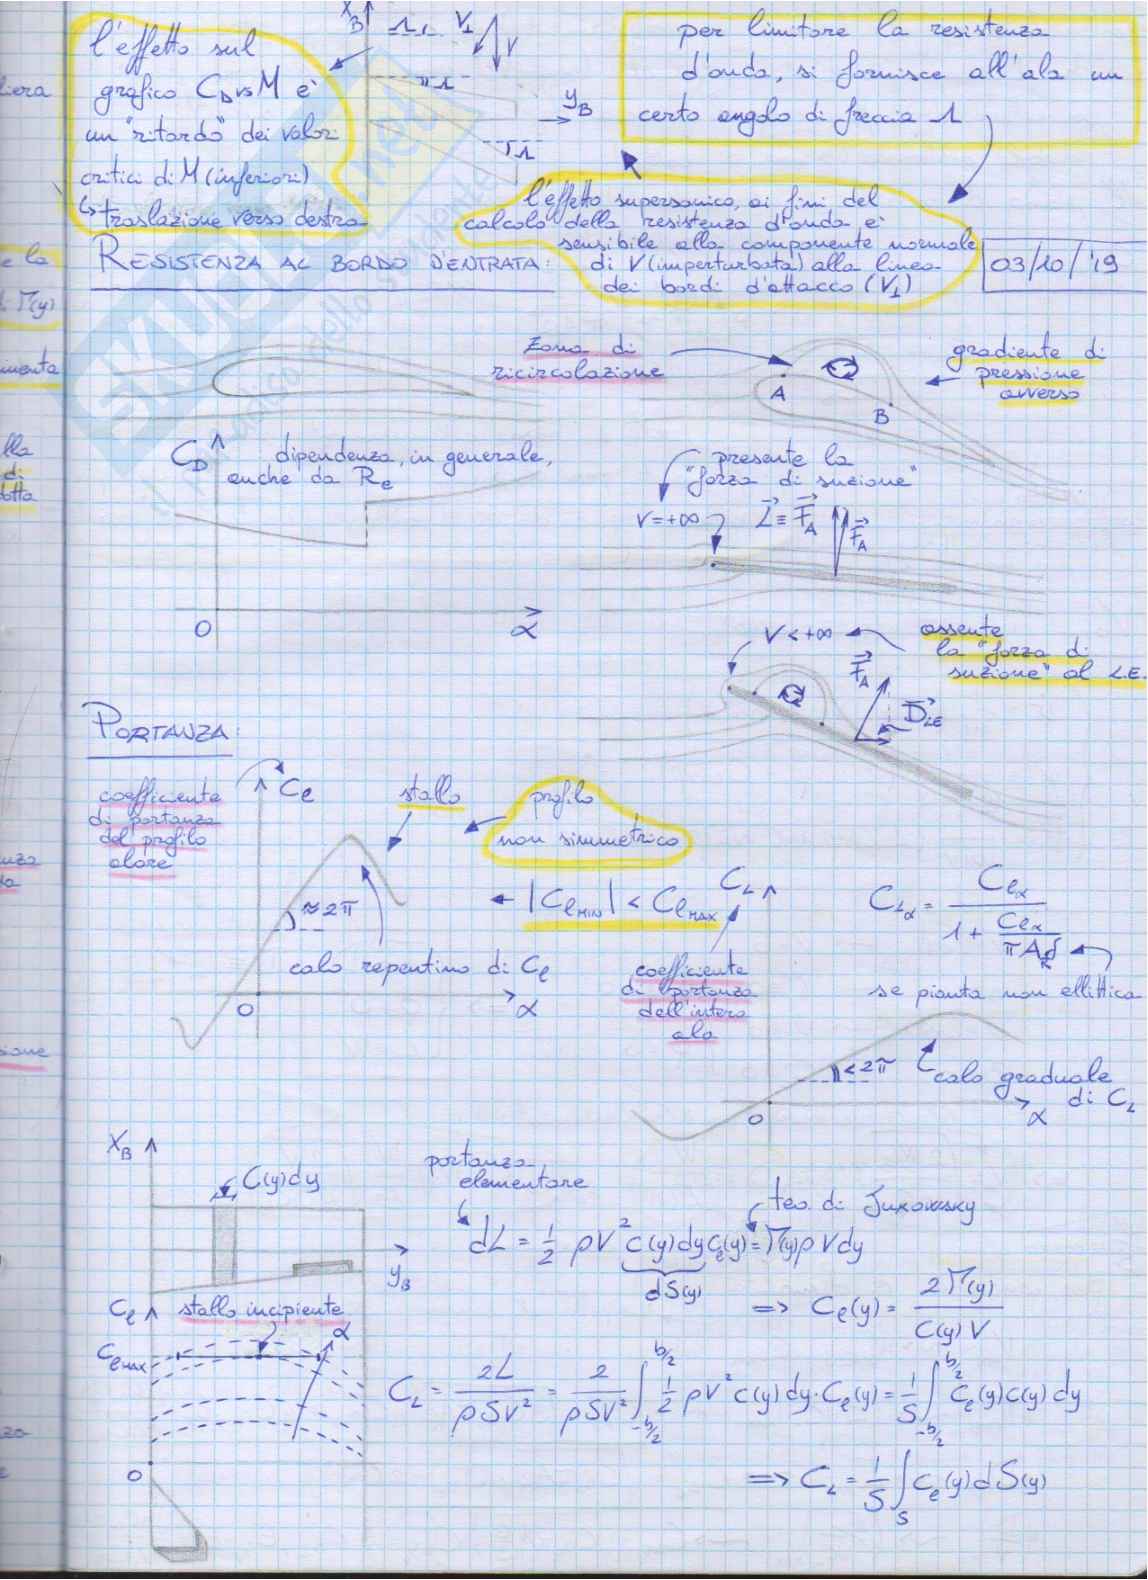 l'effetto sul
grafico C_D vs M è
un "ritardo" dei valori
critici di M (inferiori)
↳ traslazione verso destra
X_B
Λ
V⊥
V
Λ
Λ
y_B
per limitare la resistenza
d'onda, si fornisce all'ala un
certo angolo di freccia Λ
l'effetto supersonico, ai fini del
calcolo della resistenza d'onda è
sensibile alla componente normale
di V (imperturbata) alla linea
dei bordi d'attacco (V⊥)
RESISTENZA AL BORDO D'ENTRATA:
03/10/'19
zona di
ricircolazione
A
B
gradiente di
pressione
avverso
C_D
dipendenza, in generale,
anche da Re
O
α
presente la
"forza di suzione"
V=+∞
L ≡ F_A
F_A
V<+∞
assente
la "forza di
suzione" al L.E.
F_A
D_LE
PORTANZA:
coefficiente
di portanza
del profilo
alare
C_l
stallo
profilo
non simmetrico
≈2π
|C_l MIN| < C_l MAX
calo repentino di C_l
O
α
C_L
coefficiente
di portanza
dell'intera
ala
C_Lα = C_lα / (1 + C_lα / (π A_R δ))
se pianta non ellittica
<2π
calo graduale
di C_L
O
α
X_B
C(y)dy
y_B
portanza
elementare
teo. di Jukowsky
dL = 1/2 ρV² c(y)dy C_l(y) = Γ(y)ρVdy
dS(y)
=> C_l(y) = 2Γ(y) / (C(y)V)
C_l
stallo incipiente
α
C_l MAX
O
C_L = 2L / (ρSV²) = 2 / (ρSV²) ∫_{-b/2}^{b/2} 1/2 ρV² c(y)dy·C_l(y) = 1/S ∫_{-b/2}^{b/2} C_l(y)c(y)dy
=> C_L = 1/S ∫_S C_l(y)dS(y)